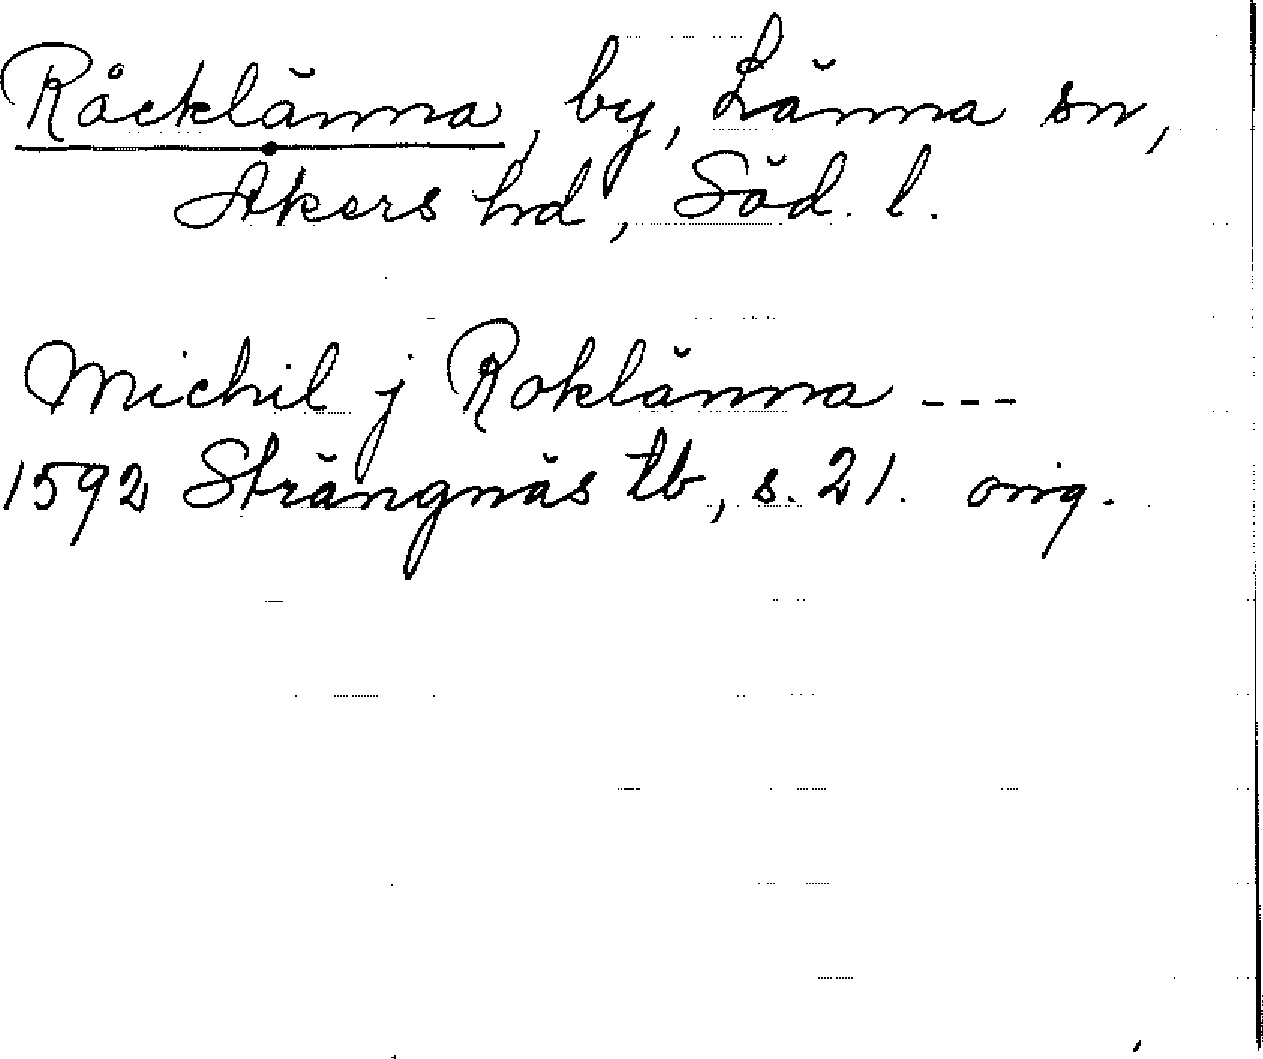 Råcklänna, by, Länna sn,
Åkers hd, Söd. l.
Michil j Roklänna ---
1592 Strängnäs tb, s. 21. orig.